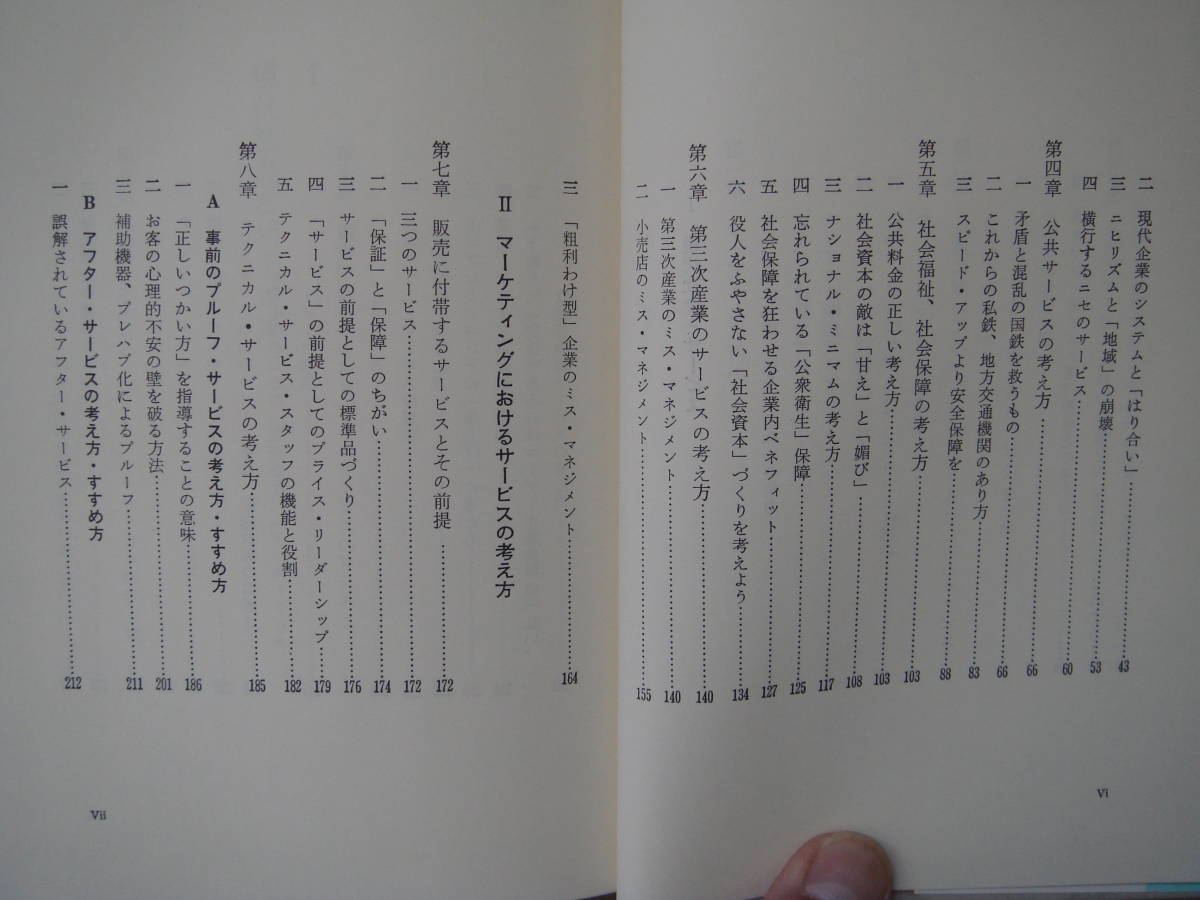 二　現代企業のシステムと「はり合い」……43
三　ニヒリズムと「地域」の崩壊……53
四　横行するニセのサービス……60
第四章　公共サービスの考え方……66
一　矛盾と混乱の国鉄を救うもの……66
二　これからの私鉄、地方交通機関のあり方……83
三　スピード・アップより安全保障を……88
第五章　社会福祉、社会保障の考え方……103
一　公共料金の正しい考え方……103
二　社会資本の敵は「甘え」と「媚び」……108
三　ナショナル・ミニマムの考え方……117
四　忘れられている「公衆衛生」保障……125
五　社会保障を狂わせる企業内ベネフィット……127
六　役人をふやさない「社会資本」づくりを考えよう……134
第六章　第三次産業のサービスの考え方……140
一　第三次産業のミス・マネジメント……140
二　小売店のミス・マネジメント……155
vi
三　「粗利わけ型」企業のミス・マネジメント……164
II　マーケティングにおけるサービスの考え方
第七章　販売に付帯するサービスとその前提……172
一　三つのサービス……172
二　「保証」と「保障」のちがい……174
三　サービスの前提としての標準品づくり……176
四　「サービス」の前提としてのプライス・リーダーシップ……179
五　テクニカル・サービス・スタッフの機能と役割……182
第八章　テクニカル・サービスの考え方……185
A　事前のプルーフ・サービスの考え方・すすめ方
一　「正しいつかい方」を指導することの意味……186
二　お客の心理的不安の壁を破る方法……201
三　補助機器、プレハブ化によるプルーフ……211
B　アフター・サービスの考え方・すすめ方
一　誤解されているアフター・サービス……212
vii